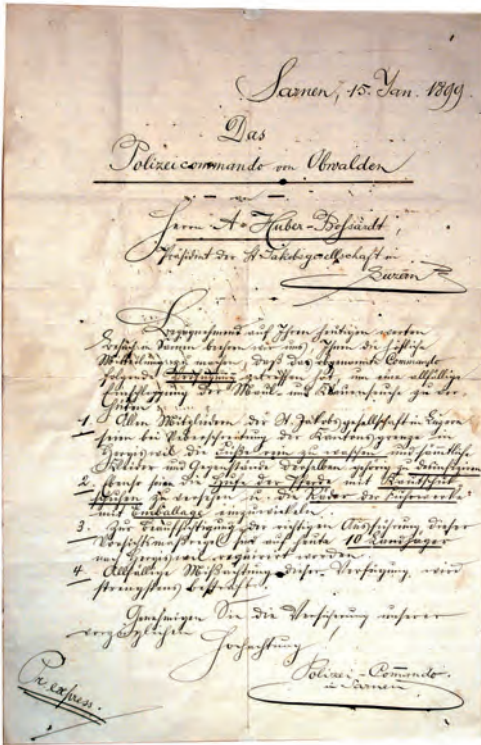 Sarnen, 15. Jan. 1899.
Das
Polizeicommando von Obwalden
Herrn A. Huber-Bossardt,
Präsident der St. Jakobsgesellschaft in
Luzern
Bezugnehmend auf Ihren heutigen werten
Besuch in Sarnen beehren wir uns, Ihnen die höfliche
Mitteilung zu machen, daß das obgenannte Commando
folgende Verfügung getroffen hat, um eine allfällige
Einschleppung der Maul- und Klauenseuche zu ver-
hüten:
1. Allen Mitgliedern der St. Jakobsgesellschaft in Luzern
seien bei Ueberschreitung der Kantonsgrenze in
Hergiswil die Füße zu waschen und sämtliche
Kleider und Gegenstände derselben gehörig zu desinfizieren
2. Ebenso seien die Hufe der Pferde mit Kautschuk-
schuhen zu versehen u. die Räder der Fuhrwerke
mit Emballage einzuwickeln.
3. Zur Beaufsichtigung der richtigen Ausführung dieser
Vorsichtsmaßregel sind auf heute 10 Landjäger
nach Hergiswil requirirt worden.
4. Allfällige Mißachtung dieser Verfügung wird
strengstens bestraft.
Genehmigen Sie die Versicherung unserer
vorzüglichen
Hochachtung
Polizei-Commando
in Sarnen.
Per express.